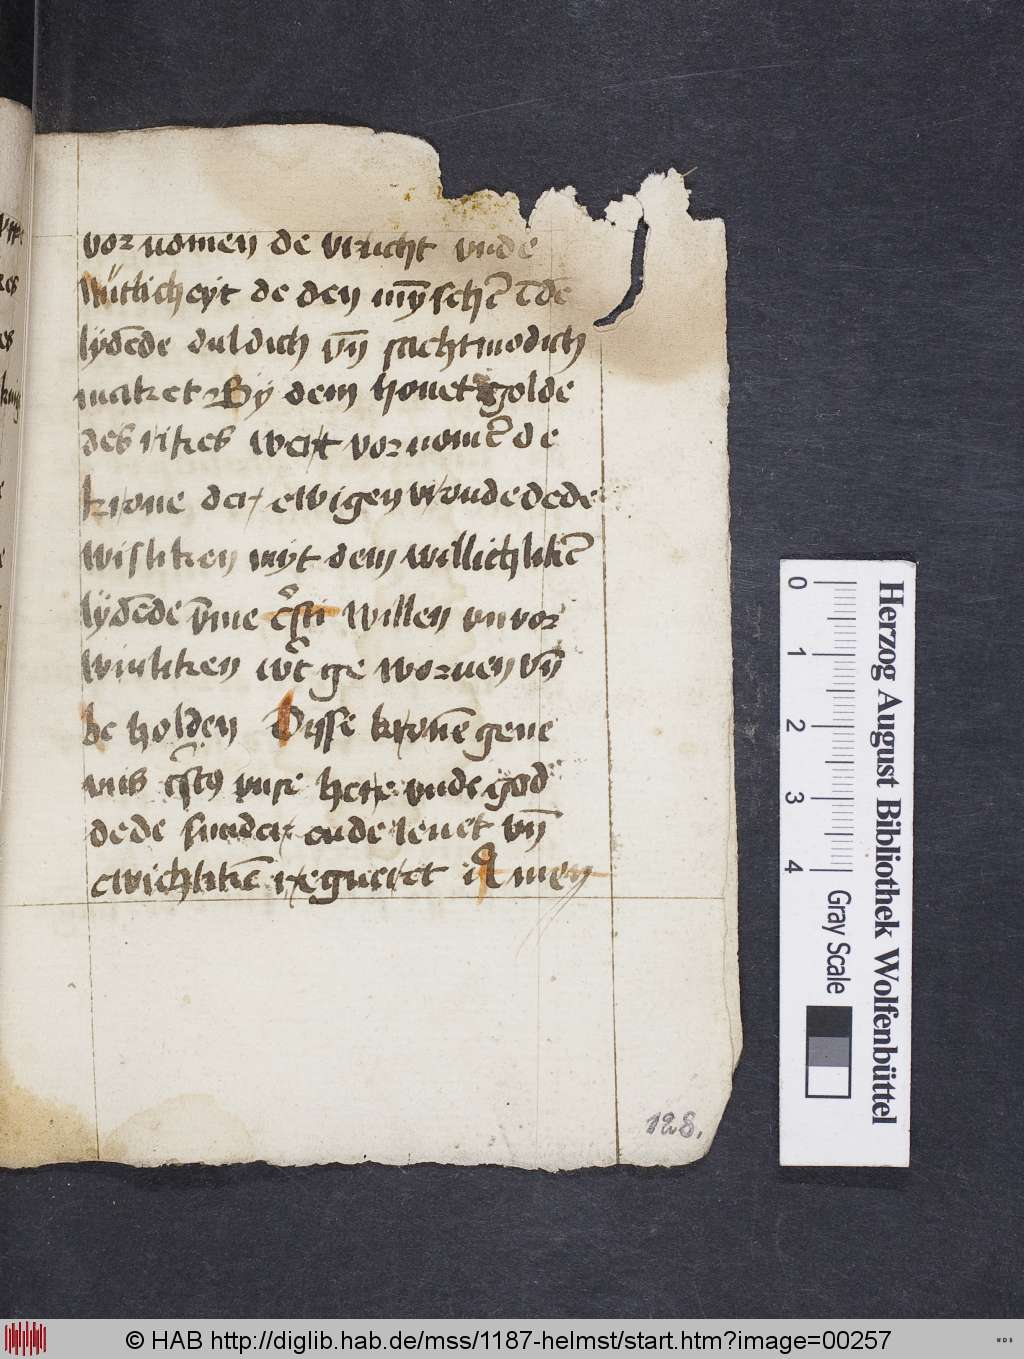 vornomen de vrucht vnde
nütlicheyt de den mȳschē i̅ de
lydēde duldich vn̄ sachtmodich
maket By dem houetgolde
des rikes wert vornomē de
krone der ewigen vroude dede
wisliken myt dem willichlikē
lydēde v̄me cr̄sti willen vnvor
winliken wēt ge woruen vn̄
be holden Disse kronē geue
vns cr̄stꝰ vnse here vnde god
dede sunder ende leuet vn̄
ewichlikē regneret Amen
128.
Herzog August Bibliothek Wolfenbüttel
0 1 2 3 4
Gray Scale
© HAB http://diglib.hab.de/mss/1187-helmst/start.htm?image=00257
WDB